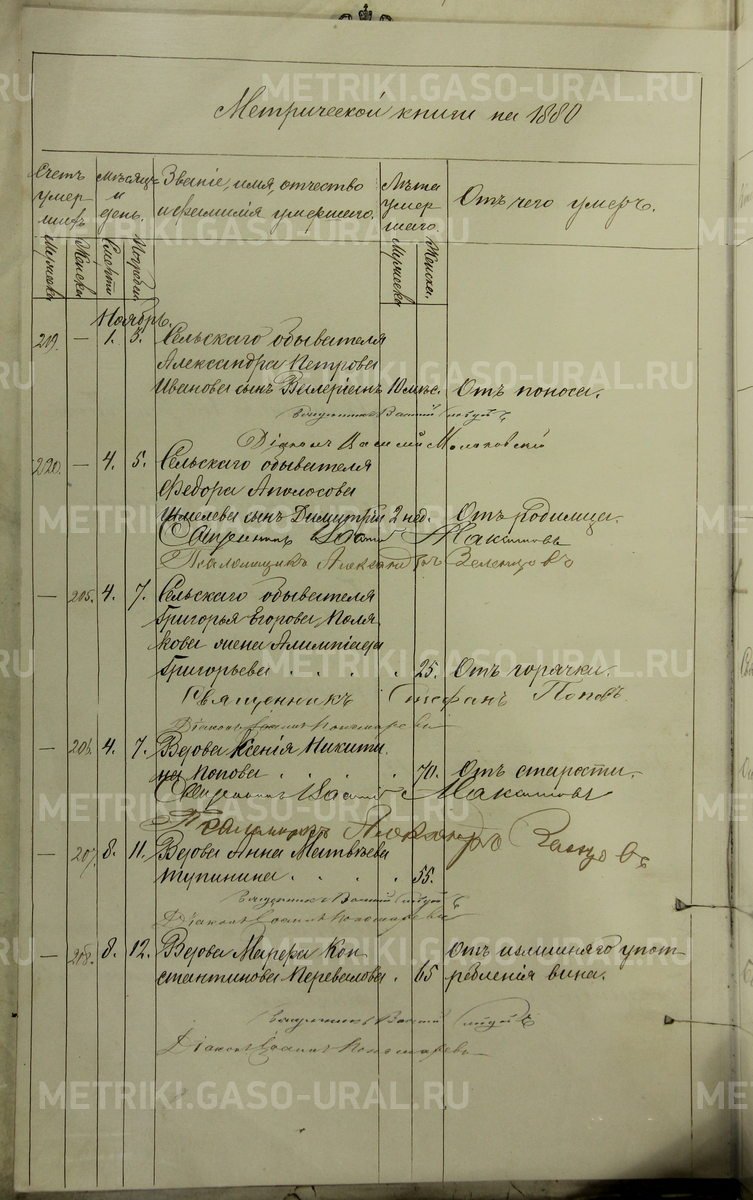 METRIKI.GASO-URAL.RU
Метрической книги на 1880
Счетъ умершихъ
Мѣсяцъ и день.
Званіе, имя, отчество и фамилія умершаго.
Лѣта умершаго.
Отъ чего умеръ.
Мужеска
Женска
Смерти
Погребен.
Мужеска
Женска.
Ноябрь.
219. — 1. 3. Сельскаго обывателя
Александра Петрова
Иванова сынъ Валеріанъ 10 мѣс. Отъ поноса.
Священникъ
Діаконъ Василій
220. — 4. 5. Сельскаго обывателя
Федора Аполосова
Шмелева сынъ Димитрій 2 нед. Отъ родимца.
Священникъ Максимовъ
Псаломщикъ Александръ Зеленцовъ
— 205. 4. 7. Сельскаго обывателя
Григорья Егорова Поля-
кова жена Алимпіада
Григорьева . . . . . 25. Отъ горячки.
Священникъ Стефанъ Поповъ
Діаконъ Іоаннъ Пономаревъ
— 206. 4. 7. Вдова Ксенія Никити-
на Попова . . . . 70. Отъ старости.
Священникъ Максимовъ
Псаломщикъ Александръ Зеленцовъ
— 207. 8. 11. Вдова Анна Матвѣева
Тупицина . . . . . 55.
Священникъ
Діаконъ Іоаннъ Пономаревъ
— 208. 8. 12. Вдова Марфа Кон-
стантинова Перевалова . 65 Отъ излишняго упот-
ребленія вина.
Священникъ
Діаконъ Іоаннъ Пономаревъ
METRIKI.GASO-URAL.RU